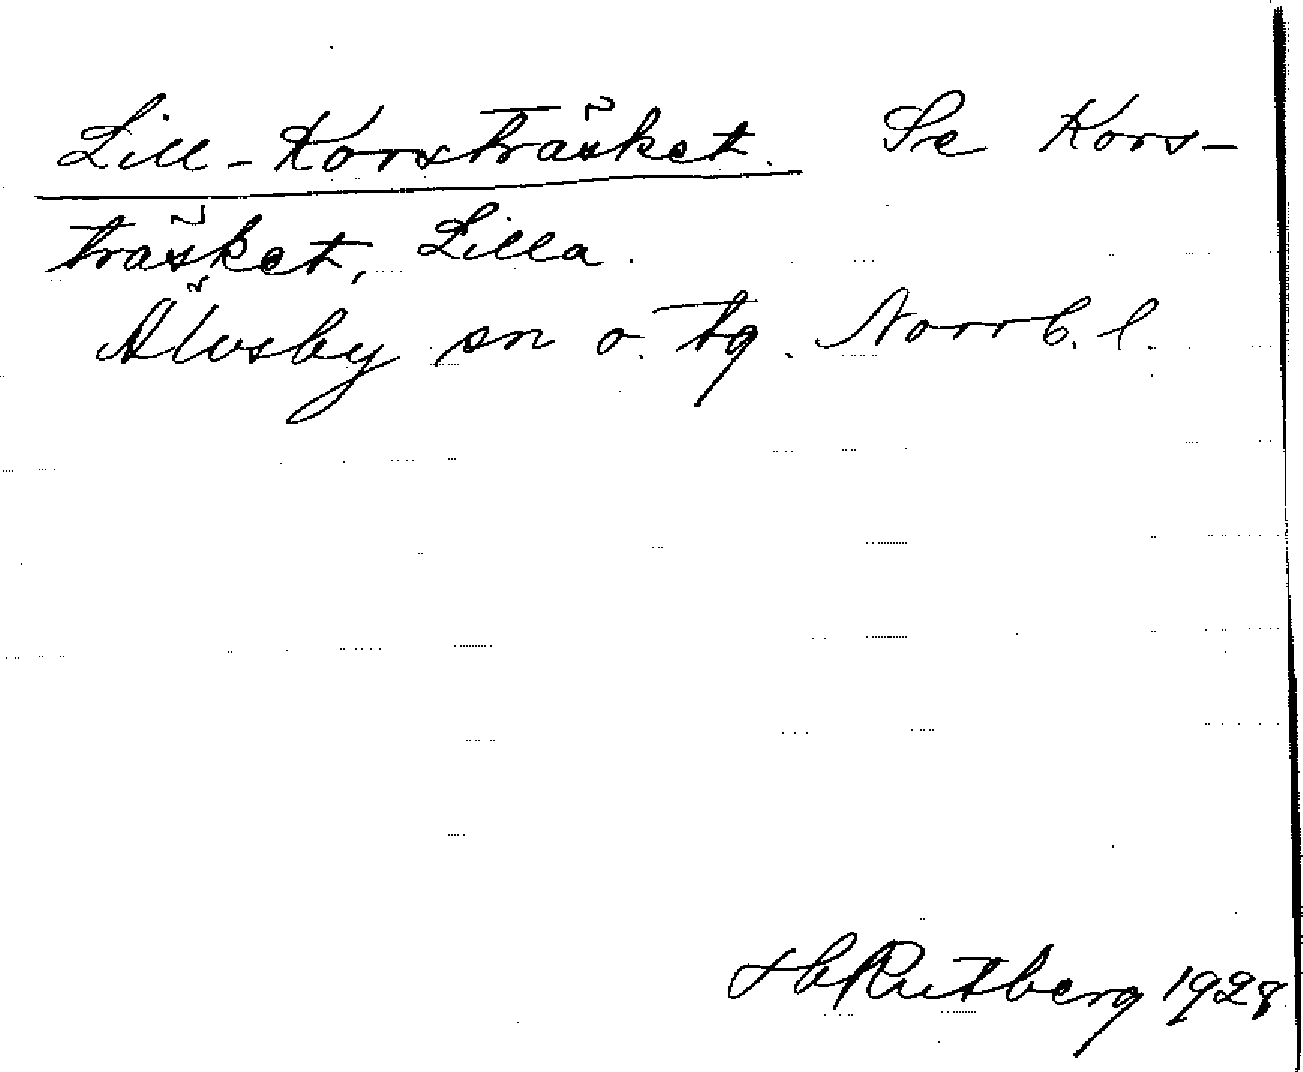 Lill-Korsträsket. Se Kors-
träsket, Lilla.
Älvsby sn o. tg. Norrb. l.
Rutberg 1928